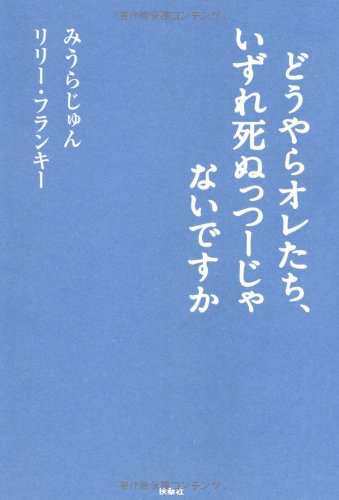 「著作権保護コンテンツ」
どうやらオレたち、
いずれ死ぬっつーじゃ
ないですか
みうらじゅん
リリー・フランキー
扶桑社
「著作権保護コンテンツ」